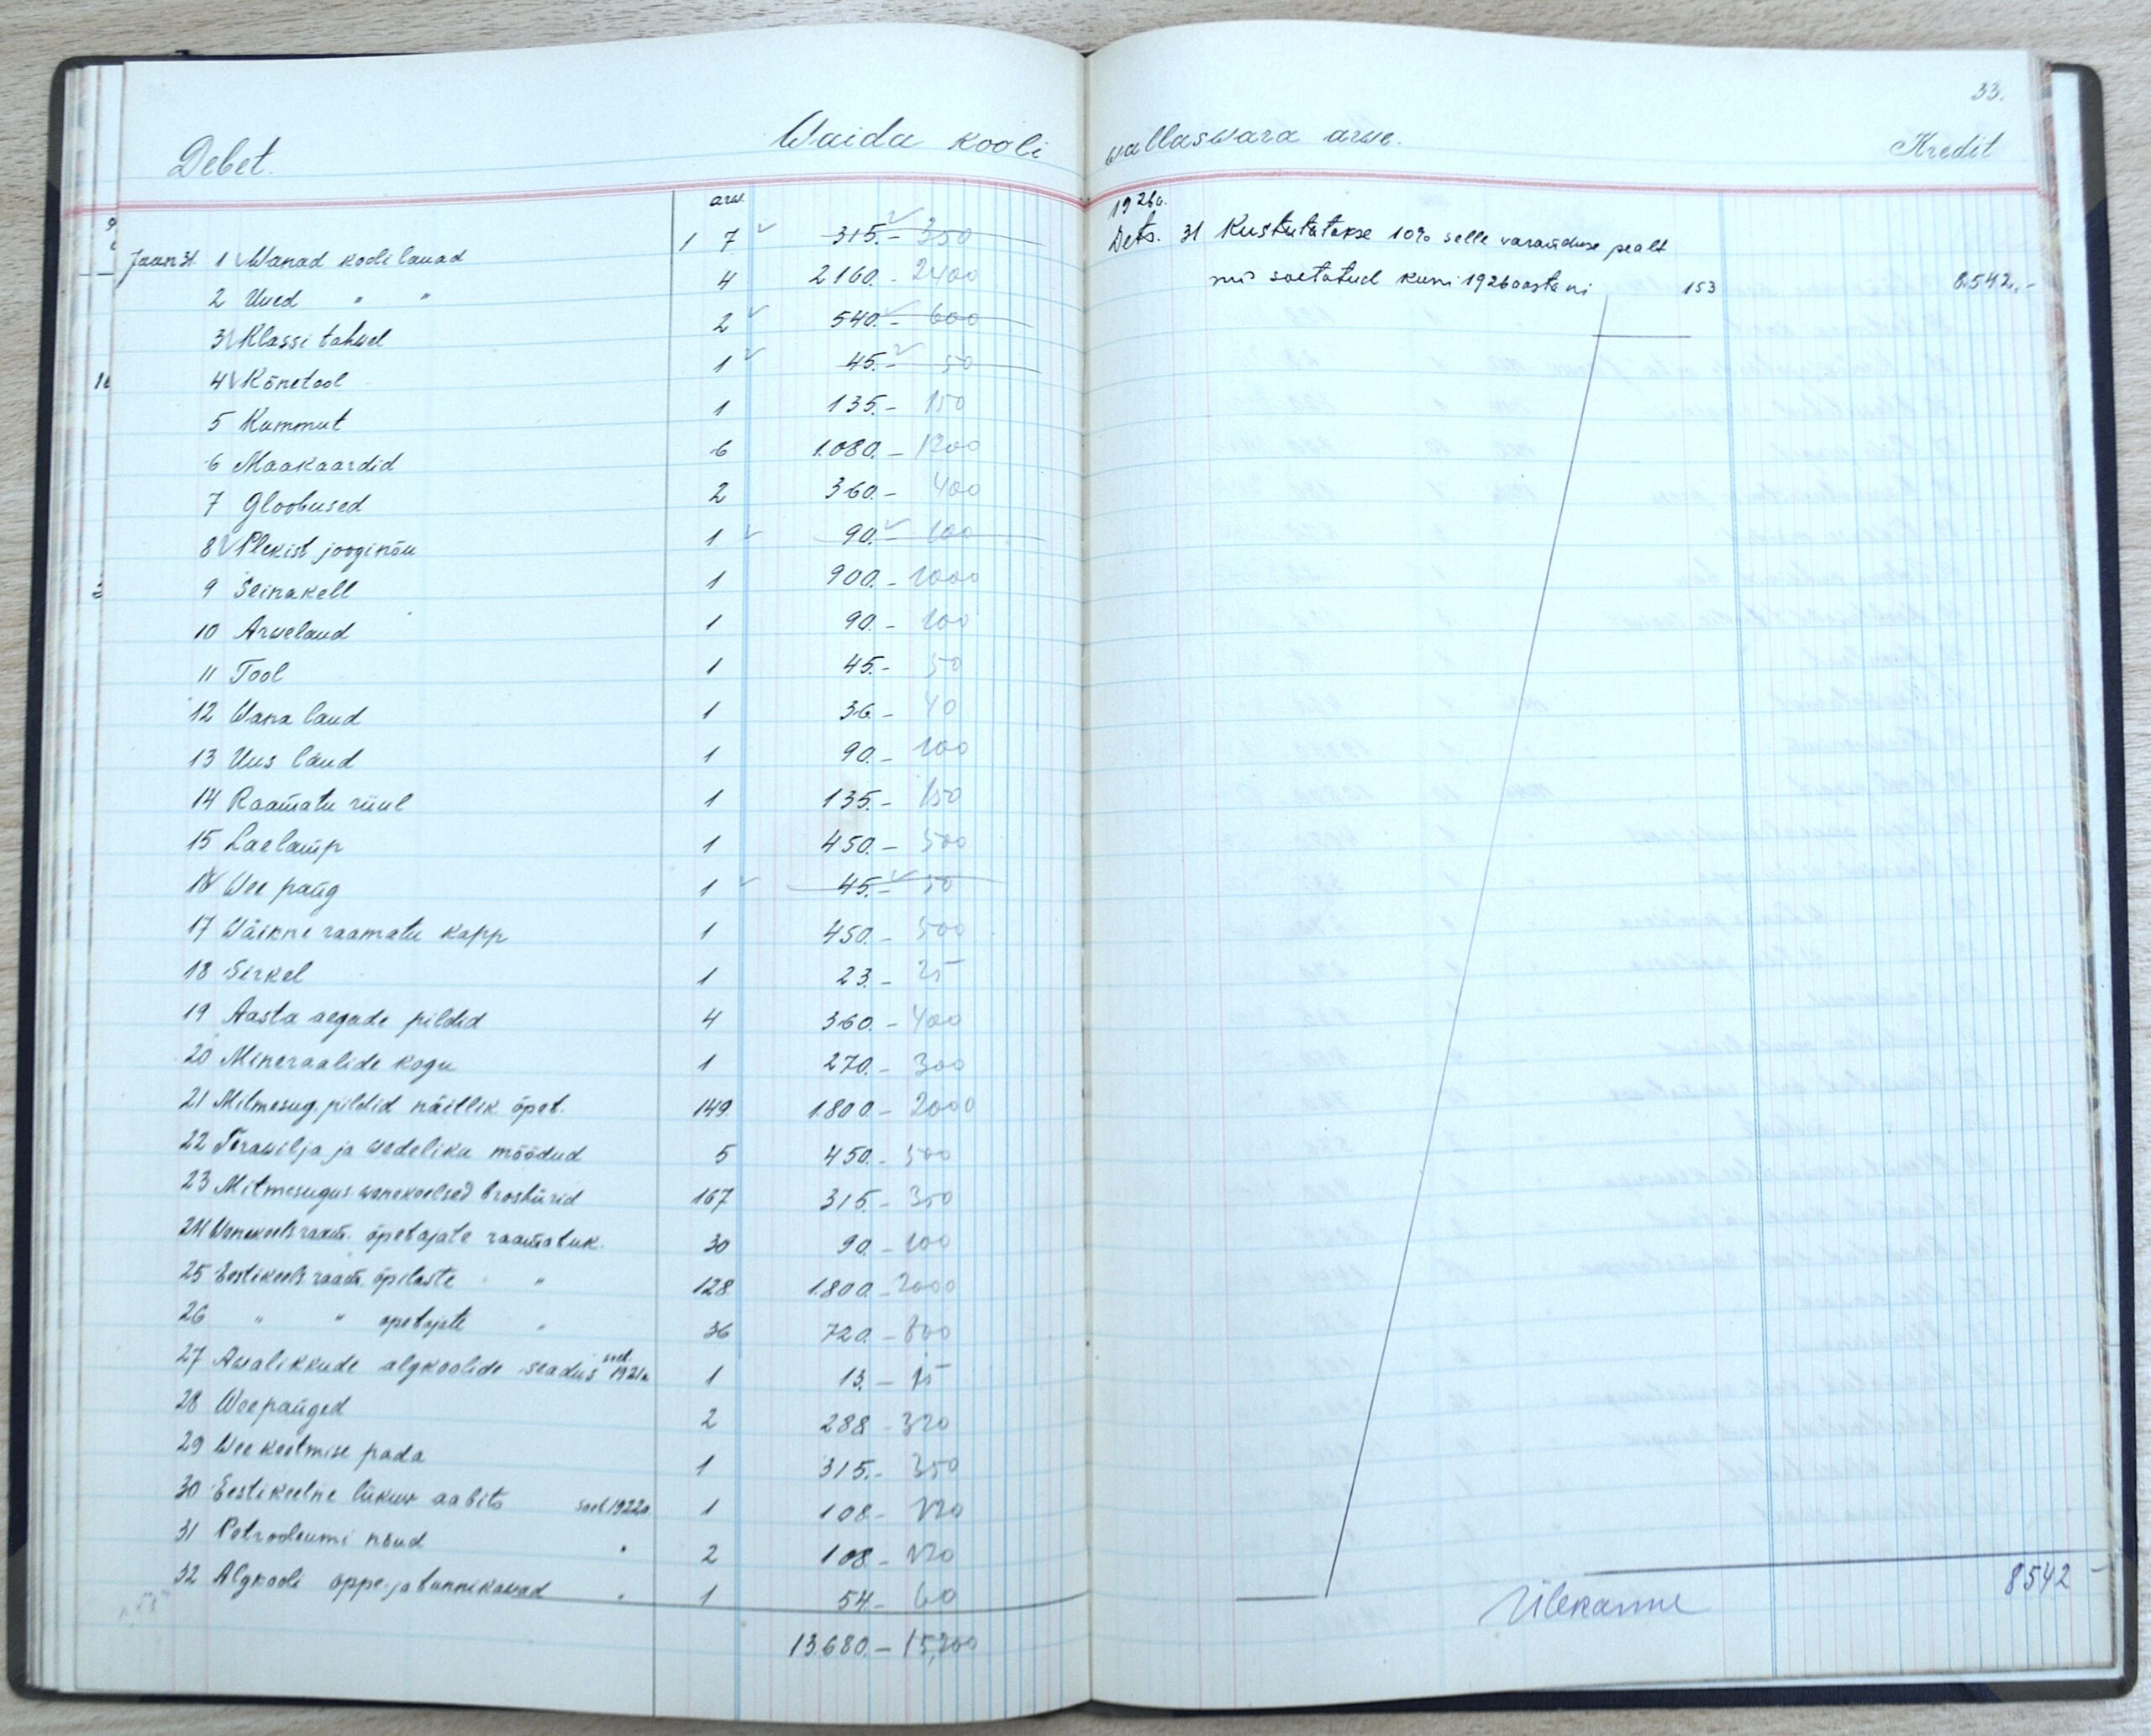 33.
Debet. Waida kooli wallaswara arwe. Kredit
arw.
Jaan 31. 1 Wanad koolilauad 7 315.- 350
2 Uued " " 4 2160.- 2400
3 Klassi tahwel 2 540.- 600
4 Kõnetool 1 45.- 50
5 Kummut 1 135.- 150
6 Maakaardid 6 1.080.- 1200
7 Gloobused 2 360.- 400
8 Plekist jooginõu 1 90.- 100
9 Seinakell 1 900.- 1000
10 Arwelaud 1 90.- 100
11 Tool 1 45.- 50
12 Wana laud 1 36.- 40
13 Uus laud 1 90.- 100
14 Raamatu riiul 1 135.- 150
15 Laelamp 1 450.- 500
16 Wee pang 1 45.- 50
17 Wäikne raamatu kapp 1 450.- 500
18 Sirkel 1 23.- 25
19 Aasta aegade pildid 4 360.- 400
20 Mineraalide kogu 1 270.- 300
21 Mitmesug. pildid näitlik õpet. 149 1.800.- 2000
22 Terawilja ja wedeliku mõõdud 5 450.- 500
23 Mitmesugus. wenekeelsed broshürid 167 315.- 350
24 Wenekeels raam. õpetajate raamatuk. 30 90.- 100
25 Eestikeels raam. õpilaste " 128 1.800.- 2000
26 " " õpetajate " 36 720.- 800
27 Awalikkude algkoolide seadus soet. 1921a 1 13.- 15
28 Weepanged 2 288.- 320
29 Wee keetmise pada 1 315.- 350
30 Eestikeelne liikuw aabits soet 1922a. 1 108.- 120
31 Petrooleumi nõud " 2 108.- 120
32 Algkooli õppe- ja tunnikawad " 1 54.- 60
13.680.- 15,200
1926a.
Dets. 31 Kustutatakse 10% selle varanduse pealt
mis soetatud kuni 1926 aastani 153 8.542.-
Ülekanne 8542 -